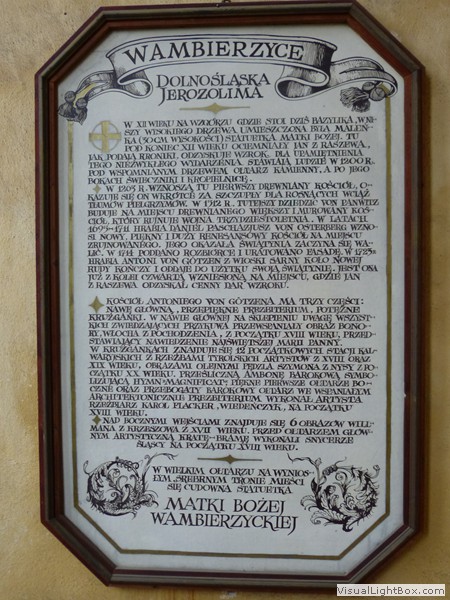 WAMBIERZYCE
DOLNOŚLĄSKA
JEROZOLIMA
W XII WIEKU NA WZGÓRZU GDZIE STOI DZIŚ BAZYLIKA, W NI-
SZY WYSOKIEGO DRZEWA UMIESZCZONA BYŁA MALEŃ-
KA (30 CM WYSOKOŚCI) STATUETKA MATKI BOŻEJ. TU
POD KONIEC XII WIEKU OCIEMNIAŁY JAN Z RASZEWA,
JAK PODAJĄ KRONIKI, ODZYSKUJE WZROK. DLA UPAMIĘTNIENIA
TEGO NIEZWYKŁEGO WYDARZENIA, STAWIAJĄ LUDZIE W 1200 R.
POD WSPOMNIANYM DRZEWEM OŁTARZ KAMIENNY, A PO JEGO
BOKACH ŚWIECZNIKI I KROPIELNICĘ.
W 1263 R. WZNOSZĄ TU PIERWSZY DREWNIANY KOŚCIÓŁ, O-
KAZUJE SIĘ ON WKRÓTCE ZA SZCZUPŁY DLA ROSNĄCYCH WCIĄŻ
TŁUMÓW PIELGRZYMÓW. W 1512 R. TUTEJSZY DZIEDZIC VON PANWITZ
BUDUJE NA MIEJSCU DREWNIANEGO WIĘKSZY I MUROWANY KOŚ-
CIÓŁ, KTÓRY RUJNUJE WOJNA TRZYDZIESTOLETNIA. W LATACH
1695-1711 HRABIA DANIEL PASCHAZJUSZ VON OSTERBERG WZNO-
SI NOWY, PIĘKNY I DUŻY RENESANSOWY KOŚCIÓŁ NA MIEJSCU
ZRUJNOWANEGO. JEGO OKAZAŁA ŚWIĄTYNIA ZACZYNA SIĘ WA-
LIĆ. W 1714 PODDANO ROZBIÓRCE I URATOWANO FASADĘ. W 1723 R.
HRABIA ANTONI VON GÖTZEN Z WIOSKI SARNY KOŁO NOWEJ
RUDY KOŃCZY I ODDAJE DO UŻYTKU SWOJĄ ŚWIĄTYNIĘ. JEST ONA
JUŻ Z KOLEI CZWARTĄ, WZNIESIONĄ NA MIEJSCU, GDZIE JAN
Z RASZEWA ODZYSKAŁ CENNY DAR WZROKU.
KOŚCIÓŁ ANTONIEGO VON GÖTZENA MA TRZY CZĘŚCI:
NAWĘ GŁÓWNĄ, PRZEPIĘKNE PREZBITERIUM, POTĘŻNE
KRUŻGANKI. W NAWIE GŁÓWNEJ NA SKLEPIENIU UWAGĘ WSZYST-
KICH ZWIEDZAJĄCYCH PRZYKUWA PRZEWSPANIAŁY OBRAZ BONO-
RY, WŁOCHA Z POCHODZENIA, Z POCZĄTKU XVIII WIEKU, PRZED-
STAWIAJĄCY NAWIEDZENIE NAJŚWIĘTSZEJ MARII PANNY.
W KRUŻGANKACH ZNAJDUJE SIĘ 12 POCZĄTKOWYCH STACJI KAL-
WARYJSKICH Z RZEŹBAMI TYROLSKICH ARTYSTÓW Z XVIII ORAZ
XIX WIEKU. OBRAZAMI OLEJNYMI PĘDZLA SZYMONA Z NYSY Z PO-
CZĄTKU XX WIEKU. PRZEŚLICZNĄ AMBONĘ BAROKOWĄ, SYMBO-
LIZUJĄCĄ HYMN "MAGNIFICAT"; PIĘKNE PIERWSZE OŁTARZE BO-
CZNE ORAZ PRZEBOGATY BAROKOWY OŁTARZ WE WSPANIAŁYM
ARCHITEKTONICZNIE PREZBITERIUM WYKONAŁ ARTYSTA
RZEŹBIARZ KAROL FLACKER, WIEDEŃCZYK, NA POCZĄTKU
XVIII WIEKU.
NAD BOCZNYMI WEJŚCIAMI ZNAJDUJE SIĘ 6 OBRAZÓW WILL-
MANA Z KRZESZOWA Z XVII WIEKU. PRZED OŁTARZEM GŁÓW-
NYM ARTYSTYCZNĄ KRATĘ-BRAMĘ WYKONALI SNYCERZE
ŚLĄSCY NA POCZĄTKU XVIII WIEKU.
W WIELKIM OŁTARZU NA WYNIOS-
ŁYM, SREBRNYM TRONIE MIEŚCI
SIĘ CUDOWNA STATUETKA
MATKI BOŻEJ
WAMBIERZYCKIEJ
VisualLightBox.com